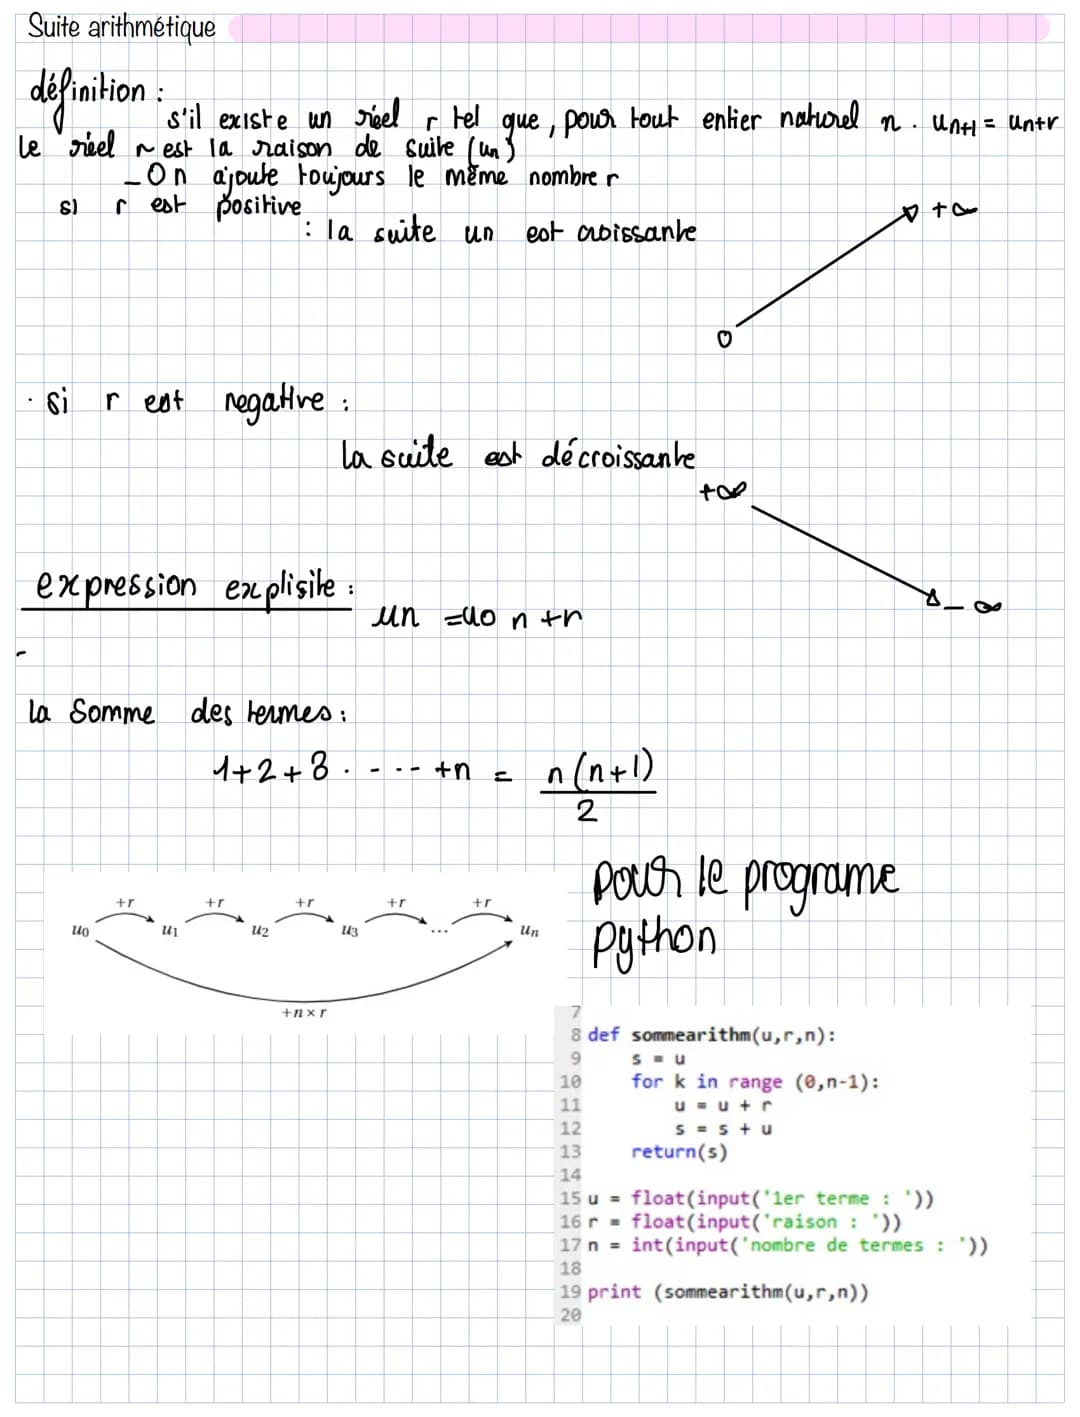 Suite arithmétique
définition :
s'il existe un réel r tel que, pour tout entier naturel n . un+1 = un+r
le réel r est la raison de suite (un)
_On ajoute toujours le même nombre r
si r est positive
: la suite un est croissante
+∞
0
· si r est negative :
la suite est décroissante
+∞
-∞
expression explisite :
un =u0 n +r
-
la Somme des termes :
1+2+3 . - - - - +n = n(n+1)
2
pour le programe
python
+r +r +r +r +r
u0 u1 u2 u3 ... un
+n×r
7
8 def sommearithm(u,r,n):
9 s = u
10 for k in range (0,n-1):
11 u = u + r
12 s = s + u
13 return(s)
14
15 u = float(input('1er terme : '))
16 r = float(input('raison : '))
17 n = int(input('nombre de termes : '))
18
19 print (sommearithm(u,r,n))
20